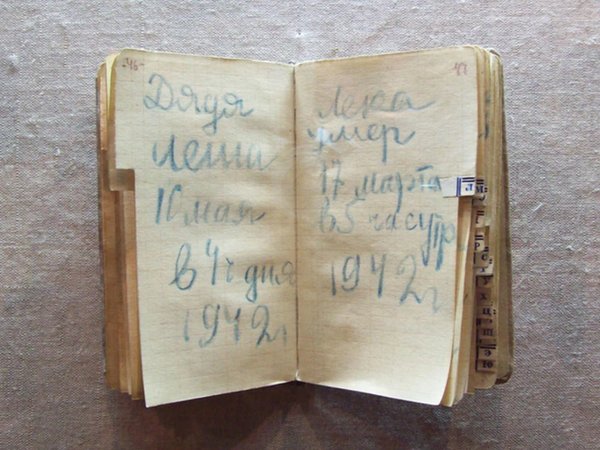 46
Дядя
Леша
10 мая
в 4 ч дня
1942 г
47
Лека
умер
17 марта
в 5 час утр
1942 г
Л М
Р
С
У
Х
Ц
Щ
Э Ю